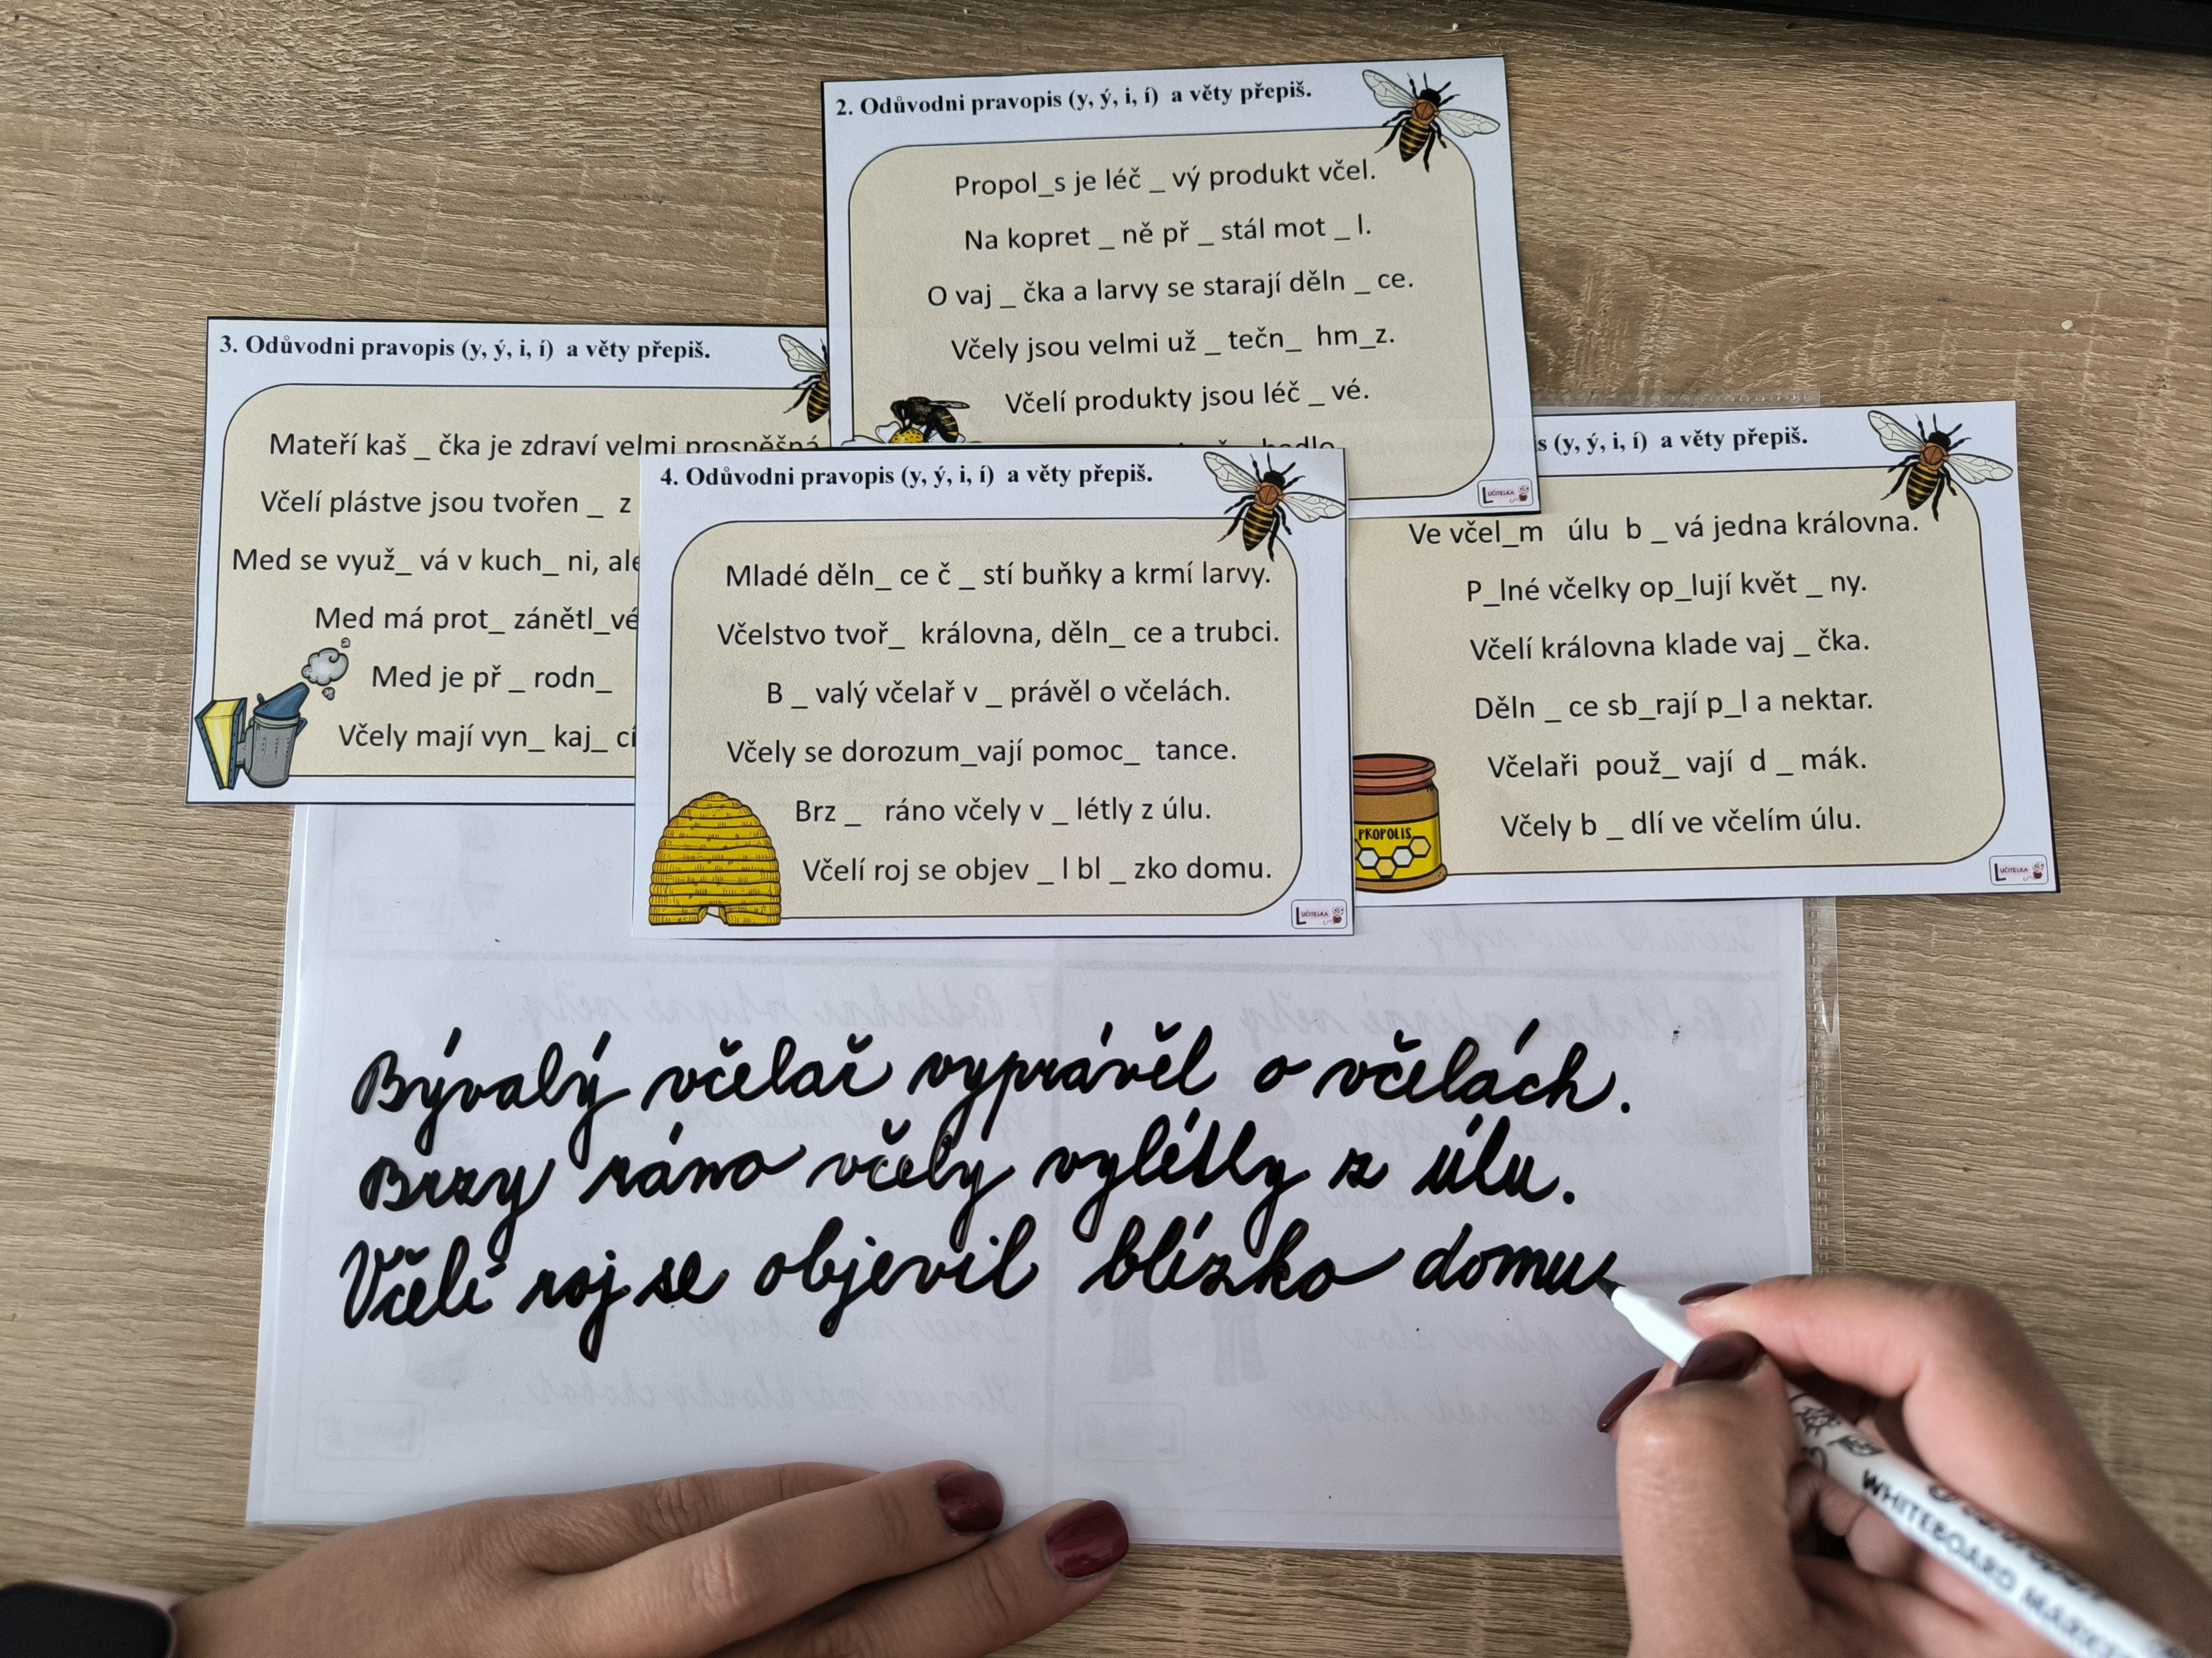 2. Odůvodni pravopis (y, ý, i, í) a věty přepiš.
Propol_s je léč _ vý produkt včel.
Na kopret _ ně př _ stál mot _ l.
O vaj _ čka a larvy se starají děln _ ce.
Včely jsou velmi už _ tečn_ hm_z.
Včelí produkty jsou léč _ vé.
UČITELKA
3. Odůvodni pravopis (y, ý, i, í) a věty přepiš.
Mateří kaš _ čka je zdraví velmi prospěšná
Včelí plástve jsou tvořen _ z
Med se využ_ vá v kuch_ ni, ale
Med má prot_ zánětl_vé
Med je př _ rodn_
Včely mají vyn_ kaj_ cí
4. Odůvodni pravopis (y, ý, i, í) a věty přepiš.
Mladé děln_ ce č _ stí buňky a krmí larvy.
Včelstvo tvoř_ královna, děln_ ce a trubci.
B _ valý včelař v _ právěl o včelách.
Včely se dorozum_vají pomoc_ tance.
Brz _ ráno včely v _ létly z úlu.
Včelí roj se objev _ l bl _ zko domu.
UČITELKA
s (y, ý, i, í) a věty přepiš.
Ve včel_m úlu b _ vá jedna královna.
P_lné včelky op_lují květ _ ny.
Včelí královna klade vaj _ čka.
Děln _ ce sb_rají p_l a nektar.
Včelaři použ_ vají d _ mák.
Včely b _ dlí ve včelím úlu.
PROPOLIS
UČITELKA
Bývalý včelař vyprávěl o včelách.
Brzy ráno včely vylétly z úlu.
Včelí roj se objevil blízko domu
WHITEBOARD MARKER